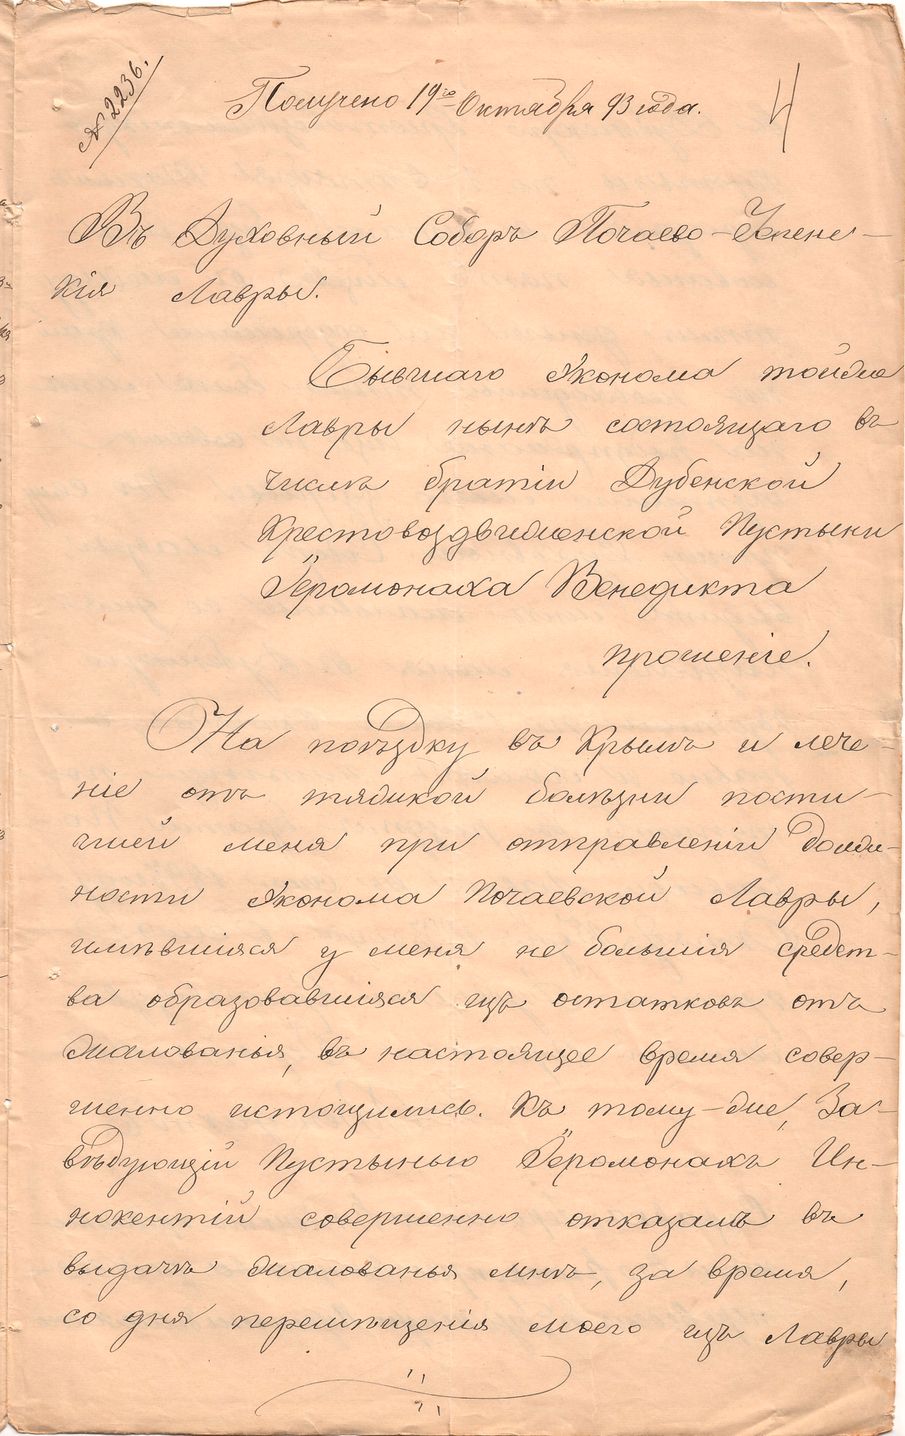 № 2236.
Получено 19го Октября 93 года.
4
Въ Духовный Соборъ Почаево-Успенс-
кія Лавры.
Бывшаго Эконома тойже
Лавры нынѣ состоящаго въ
числѣ братіи Дубенской
Крестовоздвиженской Пустыни
Іеромонаха Венедикта
прошеніе.
На поѣздку въ Крымъ и лече-
ніе отъ тяжкой болѣзни пости-
гшей меня при отправленіи долж-
ности Эконома Почаевской Лавры,
имѣвшіяся у меня не большія средст-
ва образовавшіяся изъ остатковъ отъ
жалованья, въ настоящее время совер-
шенно истощились. Къ тому-же, За-
вѣдующій Пустынью Іеромонахъ Ин-
нокентій совершенно отказалъ въ
выдачѣ жалованья мнѣ, за время,
со дня перемѣщенія моего изъ Лавры